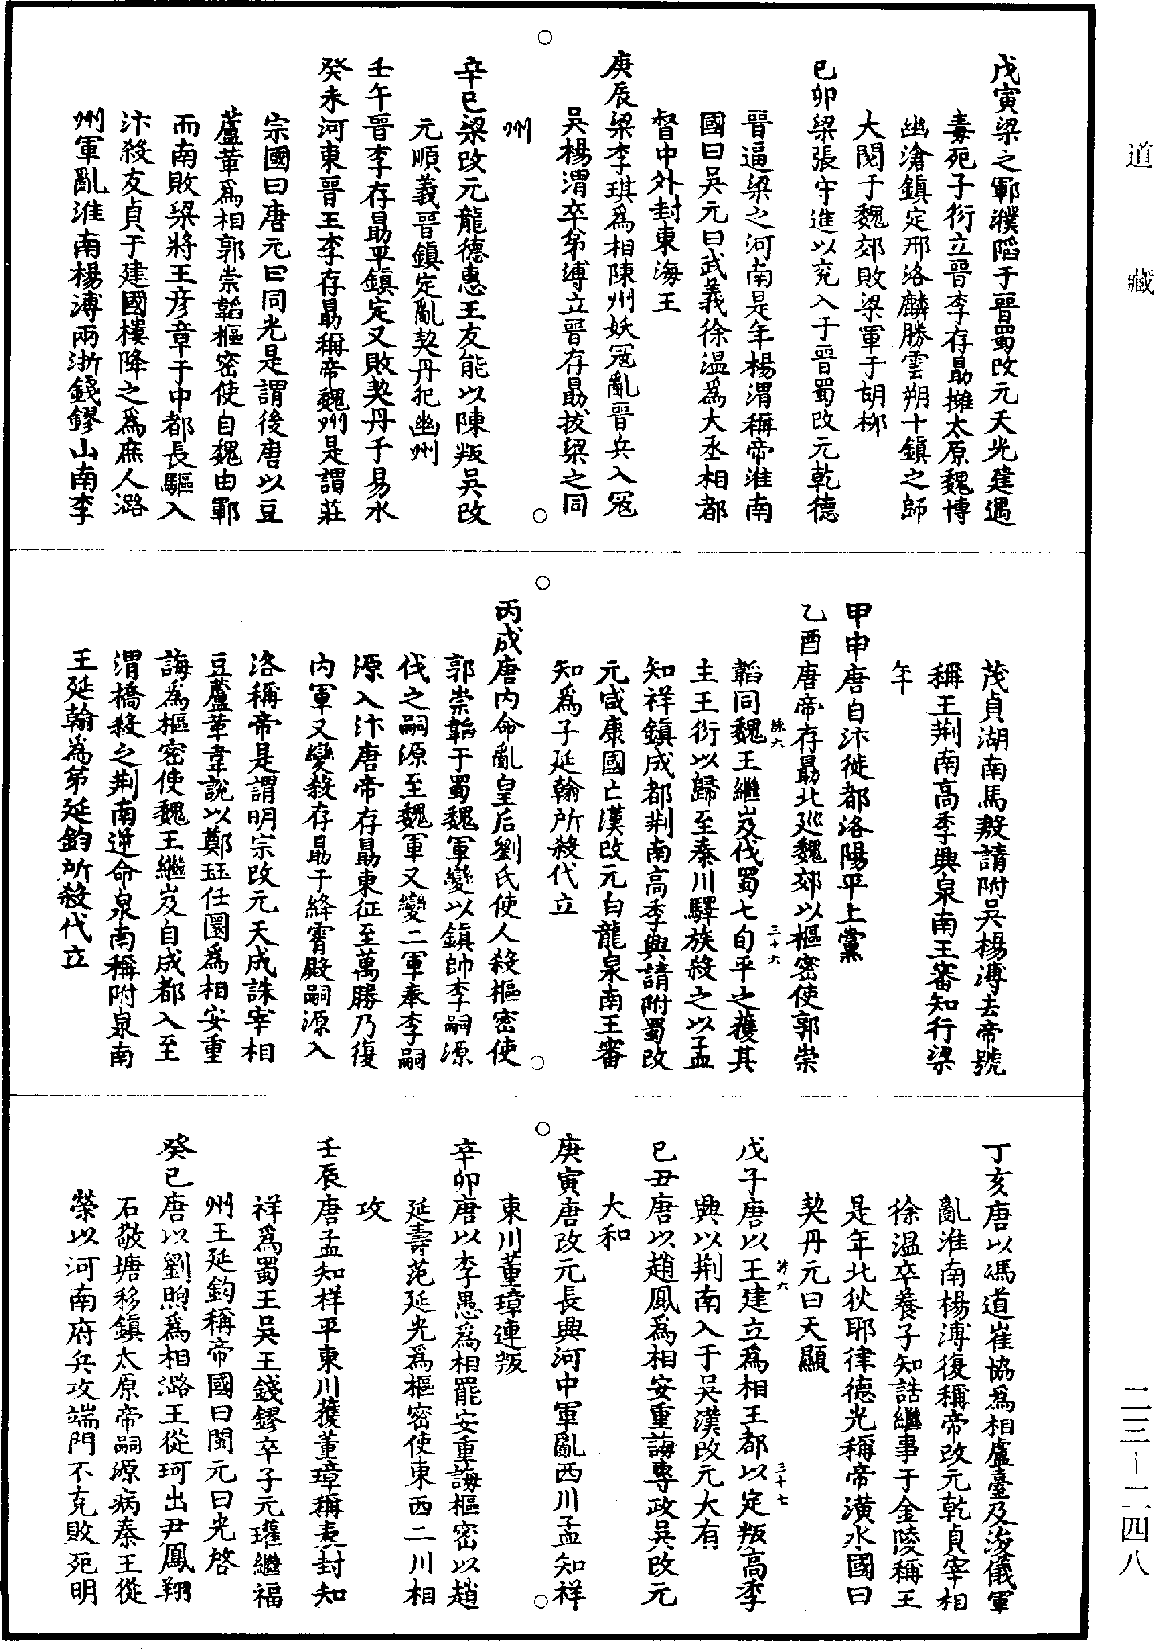 戊寅梁之鄆濮䧟于晉蜀改元天光建遇
毒死子衍立晉李存勗擁太原魏博
幽滄鎮定邢洺麟勝雲朔十鎮之師
大閱于魏郊敗梁軍于胡柳
己卯梁張守進以兖入于晉蜀改元乾德
晉逼梁之河南是年楊渭稱帝淮南
國曰吳元曰武義徐温為大丞相都
督中外封東海王
庚辰梁李琪爲相陳州妖寇亂晉兵入冦
吳楊渭卒弟溥立晉存勗拔梁之同
州
辛巳梁改元龍德惠王友能以陳叛吳改
元順義晉鎮定亂契丹犯幽州
壬午晉李存勗平鎮定又敗契丹于易水
癸未河東晉王李存勗稱帝魏州是謂莊
宗國曰唐元曰同光是謂後唐以豆
蘆革爲相郭崇韜樞密使自魏由鄆
而南敗梁將王彦章于中都長驅入
汴殺友貞于建國樓降之爲庶人潞
州軍亂淮南楊溥兩浙錢鏐山南李
茂貞湖南馬殷請附吳楊溥去帝號
稱王荆南高季興泉南王審知行梁
年
甲申唐自汴徙都洛陽平上黨
乙酉唐帝存勗北廵魏郊以樞密使郭崇
韜同魏王繼岌伐蜀七旬平之獲其
主王衍以歸至秦川驛族殺之以孟
知祥鎮成都荆南高季興請附蜀改
元咸康國亡漢改元白龍泉南王審
知爲子延翰所殺代立
丙戌唐内命亂皇后劉氏使人殺樞密使
郭崇韜于蜀魏軍變以鎮帥李嗣源
伐之嗣源至魏軍又變二軍奉李嗣
源入汴唐帝存勗東征至萬勝乃復
内軍又變殺存勗于絳霄殿嗣源入
洛稱帝是謂明宗改元天成誅宰相
豆蘆革韋説以鄭珏任圜爲相安重
誨為樞密使魏王繼岌自成都入至
渭橋殺之荆南逆命泉南稱附泉南
王延翰為弟延鈞所殺代立
丁亥唐以馮道崔協爲相盧臺及浚儀軍
亂淮南楊溥復稱帝改元乾貞宰相
徐温卒養子知誥繼事于金陵稱王
是年北狄耶律德光稱帝潢水國曰
契丹元曰天顯
戊子唐以王建立爲相王都以定叛高季
興以荆南入于吳漢改元大有
己丑唐以趙鳳爲相安重誨專政吳改元
大和
庚寅唐改元長興河中軍亂西川孟知祥
東川董璋連叛
辛卯唐以李愚爲相罷安重誨樞密以趙
延壽范延光爲樞密使東西二川相
攻
壬辰唐孟知祥平東川獲董璋稱表封知
祥爲蜀王吳王錢鏐卒子元瓘繼福
州王延鈞稱帝國曰閩元曰光啓
癸巳唐以劉煦爲相潞王從珂出尹鳳翔
石敬塘移鎮太原帝嗣源病秦王從
榮以河南府兵攻端門不克敗死明
道藏
二三-二四八